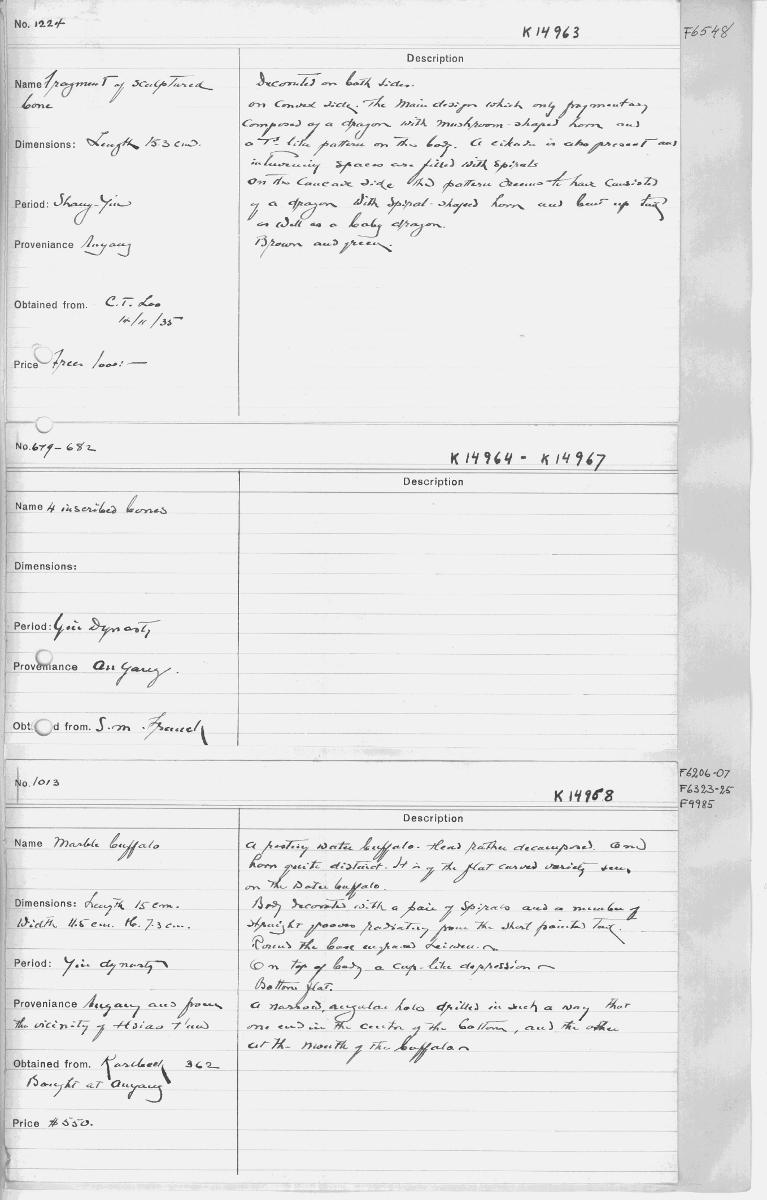 No. 1224
K 14963
F6548
Description
Name fragment of sculptured
bone
Dimensions: Length 15.3 cm.
Period: Shang-Yin
Proveniance Anyang
Obtained from. C.T. Loo
14/11/35
Price Frcs 1000:—
Decorated on both sides.
on convex side. The main design which only fragmentary
composed of a dragon with mushroom-shaped horn and
a T-like pattern on the body. A cikada is also present and
intervening spaces are filled with spirals
On the concave side the pattern seems to have consisted
of a dragon with spiral-shaped horn and bent up tail
as well as a baby dragon.
Brown and green.
No. 679-682
K 14964 - K 14967
Description
Name 4 inscribed bones
Dimensions:
Period: Yin Dynasty
Provenance An Yang.
Obt d from. S.M. Franck
No. 1013
K 14958
F6206-07
F6323-25
F9985
Description
Name Marble buffalo
Dimensions: Length 15 cm.
Width 11.5 cm. H. 7.3 cm.
Period: Yin dynasty
Proveniance Anyang and from
the vicinity of Hsiao T'un
Obtained from. Karlbeck 362
Bought at Anyang
Price # 550.
A resting water buffalo. Head rather decomposed. One
horn quite distinct. It is of the flat curved variety seen
on the water buffalo.
Body decorated with a pair of spirals and a number of
straight grooves radiating from the short pointed tail.
Round the base engraved leiwen.
On top of body a cup-like depression
Bottom flat.
A narrow, angular hole drilled in such a way that
one end in the center of the bottom, and the other
at the mouth of the buffalo